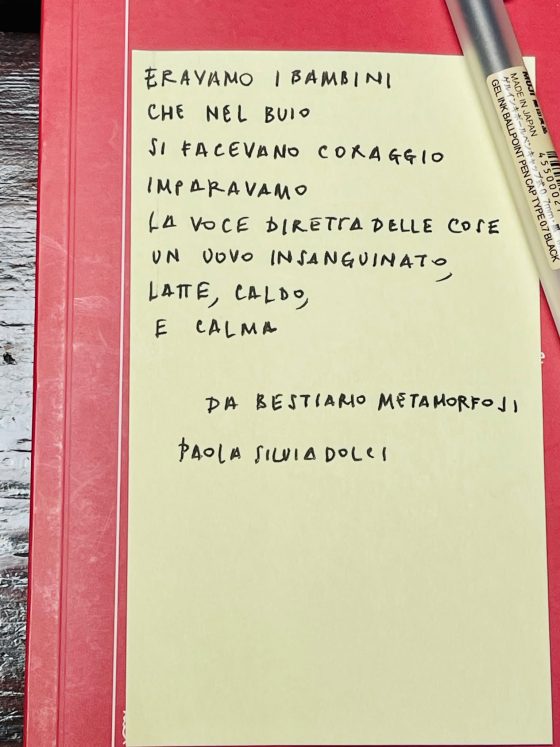 ERAVAMO I BAMBINI
CHE NEL BUIO
SI FACEVANO CORAGGIO
IMPARAVAMO
LA VOCE DIRETTA DELLE COSE
UN UOVO INSANGUINATO,
LATTE, CALDO,
E CALMA
DA BESTIARIO METAMORFOSI
PAOLA SILVIA DOLCI
MUJI 無印良品
MADE IN JAPAN
GEL INK BALLPOINT PEN CAP TYPE 07 BLACK